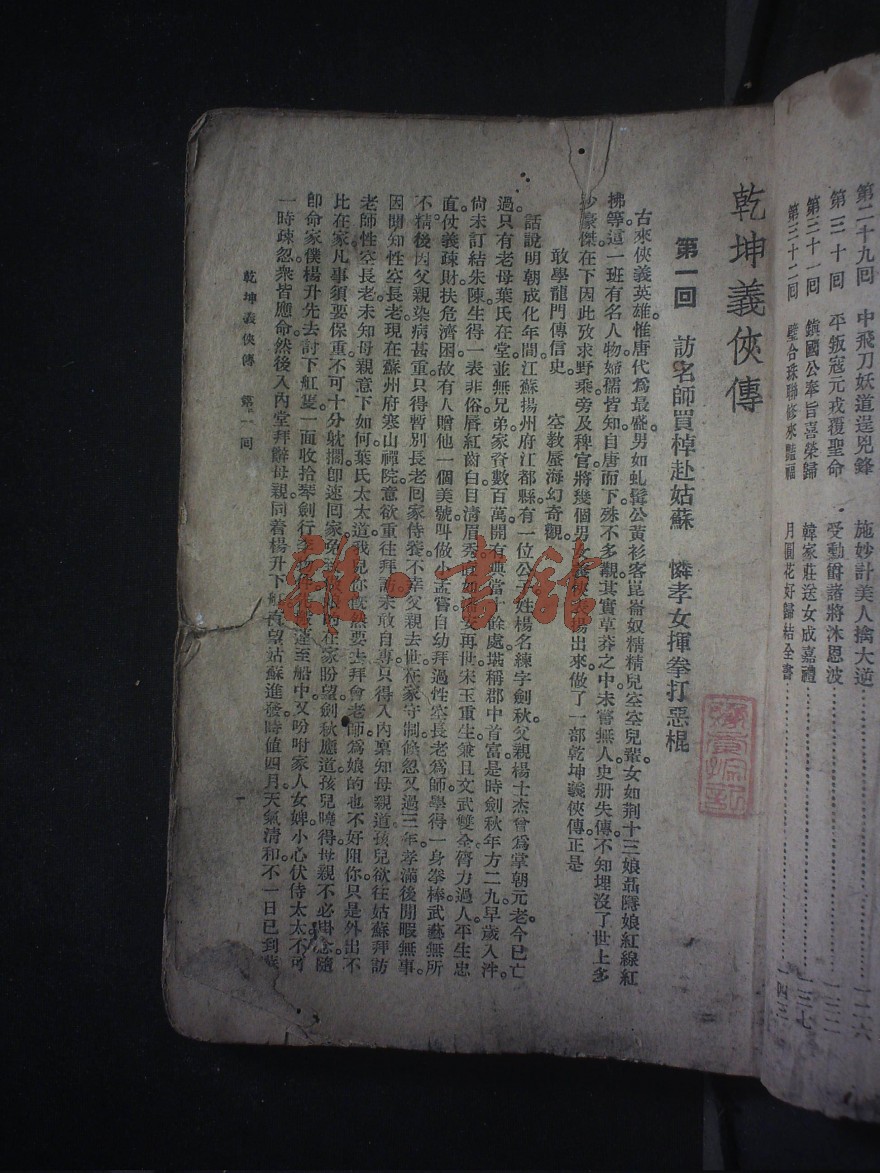 第二十九回　中飛刀妖道逞兇鋒　施妙計美人擒大逆…………一二六
第三十回　平叛寇元戎覆聖命　受勳爵諸將沐恩波…………一三二
第三十一回　鎮國公奉旨喜榮歸　韓家莊送女成嘉禮…………一三七
第三十二回　璧合珠聯修來豔福　月圓花好歸結全書…………一四三
乾坤義俠傳
第一回　訪名師買棹赴姑蘇　憐孝女揮拳打惡棍
古來俠義英雄。惟唐代爲最盛。男如虬髯公黃衫客崑崙奴精精兒空空兒輩。女如荆十三娘聶隱娘紅線紅
拂等。這一班有名人物。婦孺皆知。自唐而下。殊不多觀。其實草莽之中。未嘗無人。史册失傳。不知埋沒了世上多
少豪傑。在下因此攷求野乘。旁及稗官。將幾個男女義俠表揚出來。做了一部乾坤義俠傳。正是
敢學龍門傳信史。　空教蜃海幻奇觀。
話說明朝成化年間。江蘇揚州府江都縣。有一位公子。姓楊名練字劍秋。父親楊士杰。曾爲掌朝元老。今已亡
過。只有老母葉氏在堂。並無兄弟。家資數百萬。開有典當十餘處。堪稱郡中首富。是時劍秋年方二九。早歲入泮。
尙未訂結朱陳。生得一表非俗。唇紅齒白。目淸眉秀。宛如潘安再世。宋玉重生。兼且文武雙全。膂力過人。平生忠
直。仗義疎財。扶危濟困。故有人贈他一個美號。叫做小孟嘗。自幼拜過性空長老爲師。學得一身拳棒。武藝無所
不精。後因父親染病甚重。只得暫別長老。回家侍養。不幸父親去世。在家守制。倐忽又過三年。孝滿後閒暇無事。
因聞知性空長老現在蘇州府寒山禪院。意欲重往拜訪。未敢自專。只得入內稟知母親道。孩兒欲往姑蘇拜訪
老師性空長老。未知母親意下如何。葉氏太太道。我兒你既然要去拜會老師。爲娘的也不好阻你。只是外出不
比在家。凡事須要保重。不可十分躭擱。卽速回家。免致爲娘的在家盼望。劍秋應道。孩兒曉得。母親不必掛念。隨
卽命家僕楊升先去討下舡隻。一面收拾琴劍行李物件。發運至船中。又吩咐家人女婢。小心伏侍太太。不可
一時疎忽。衆皆應命。然後入內堂拜辭母親。同着楊升下舡。向望姑蘇進發。時値四月。天氣淸和。不一日已到蘇
乾坤義俠傳　第一回　一
雜·書館